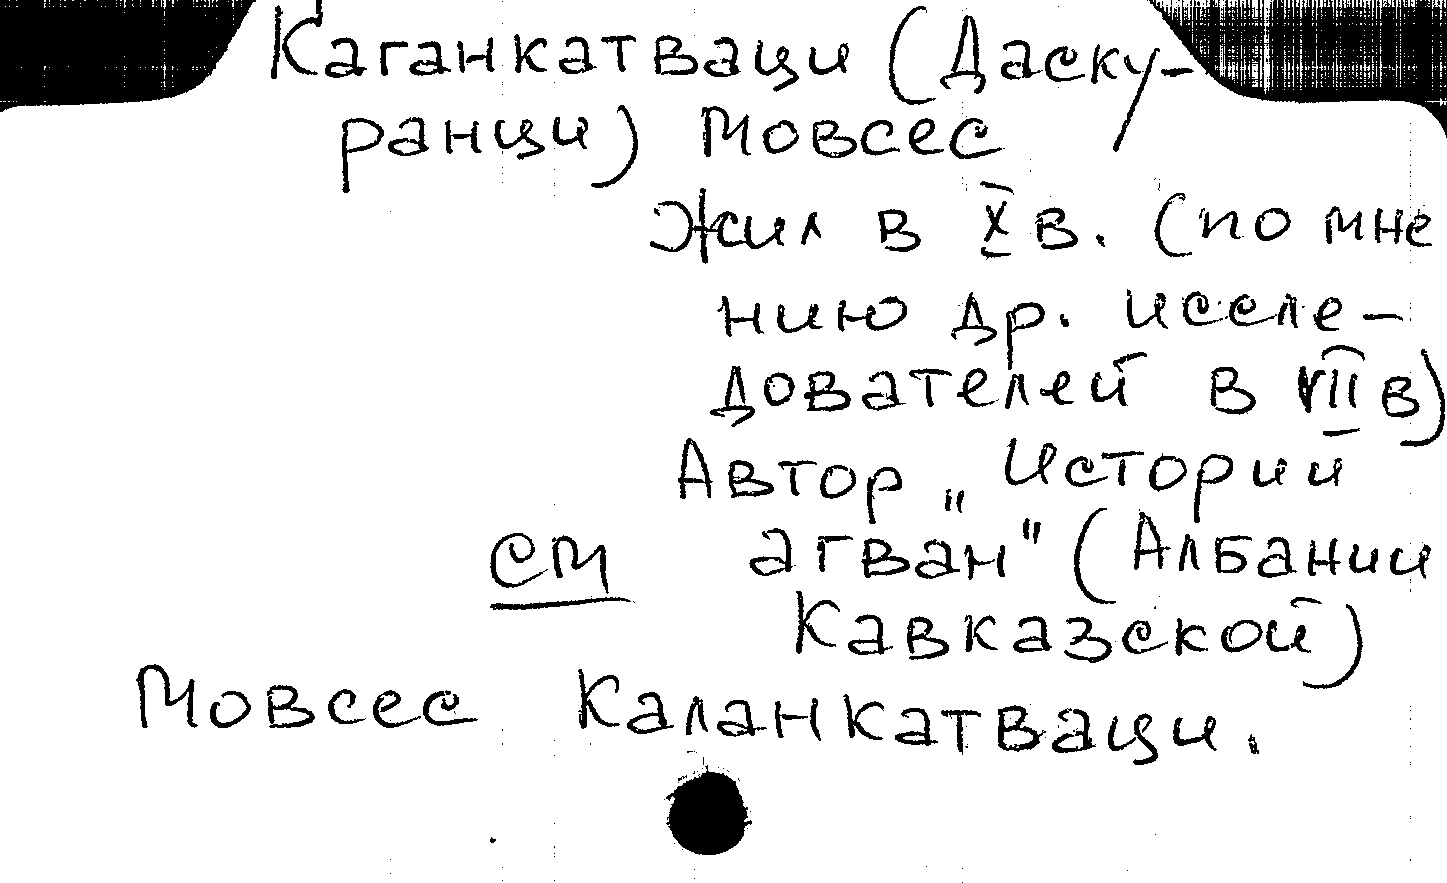 Каганкатваци (Даску-
ранци) Мовсес
Жил в X в. (по мне
нию др. иссле-
дователей в VII в)
Автор „Историй
агван" (Албании
см
Кавказской)
Мовсес Каланкатваци.